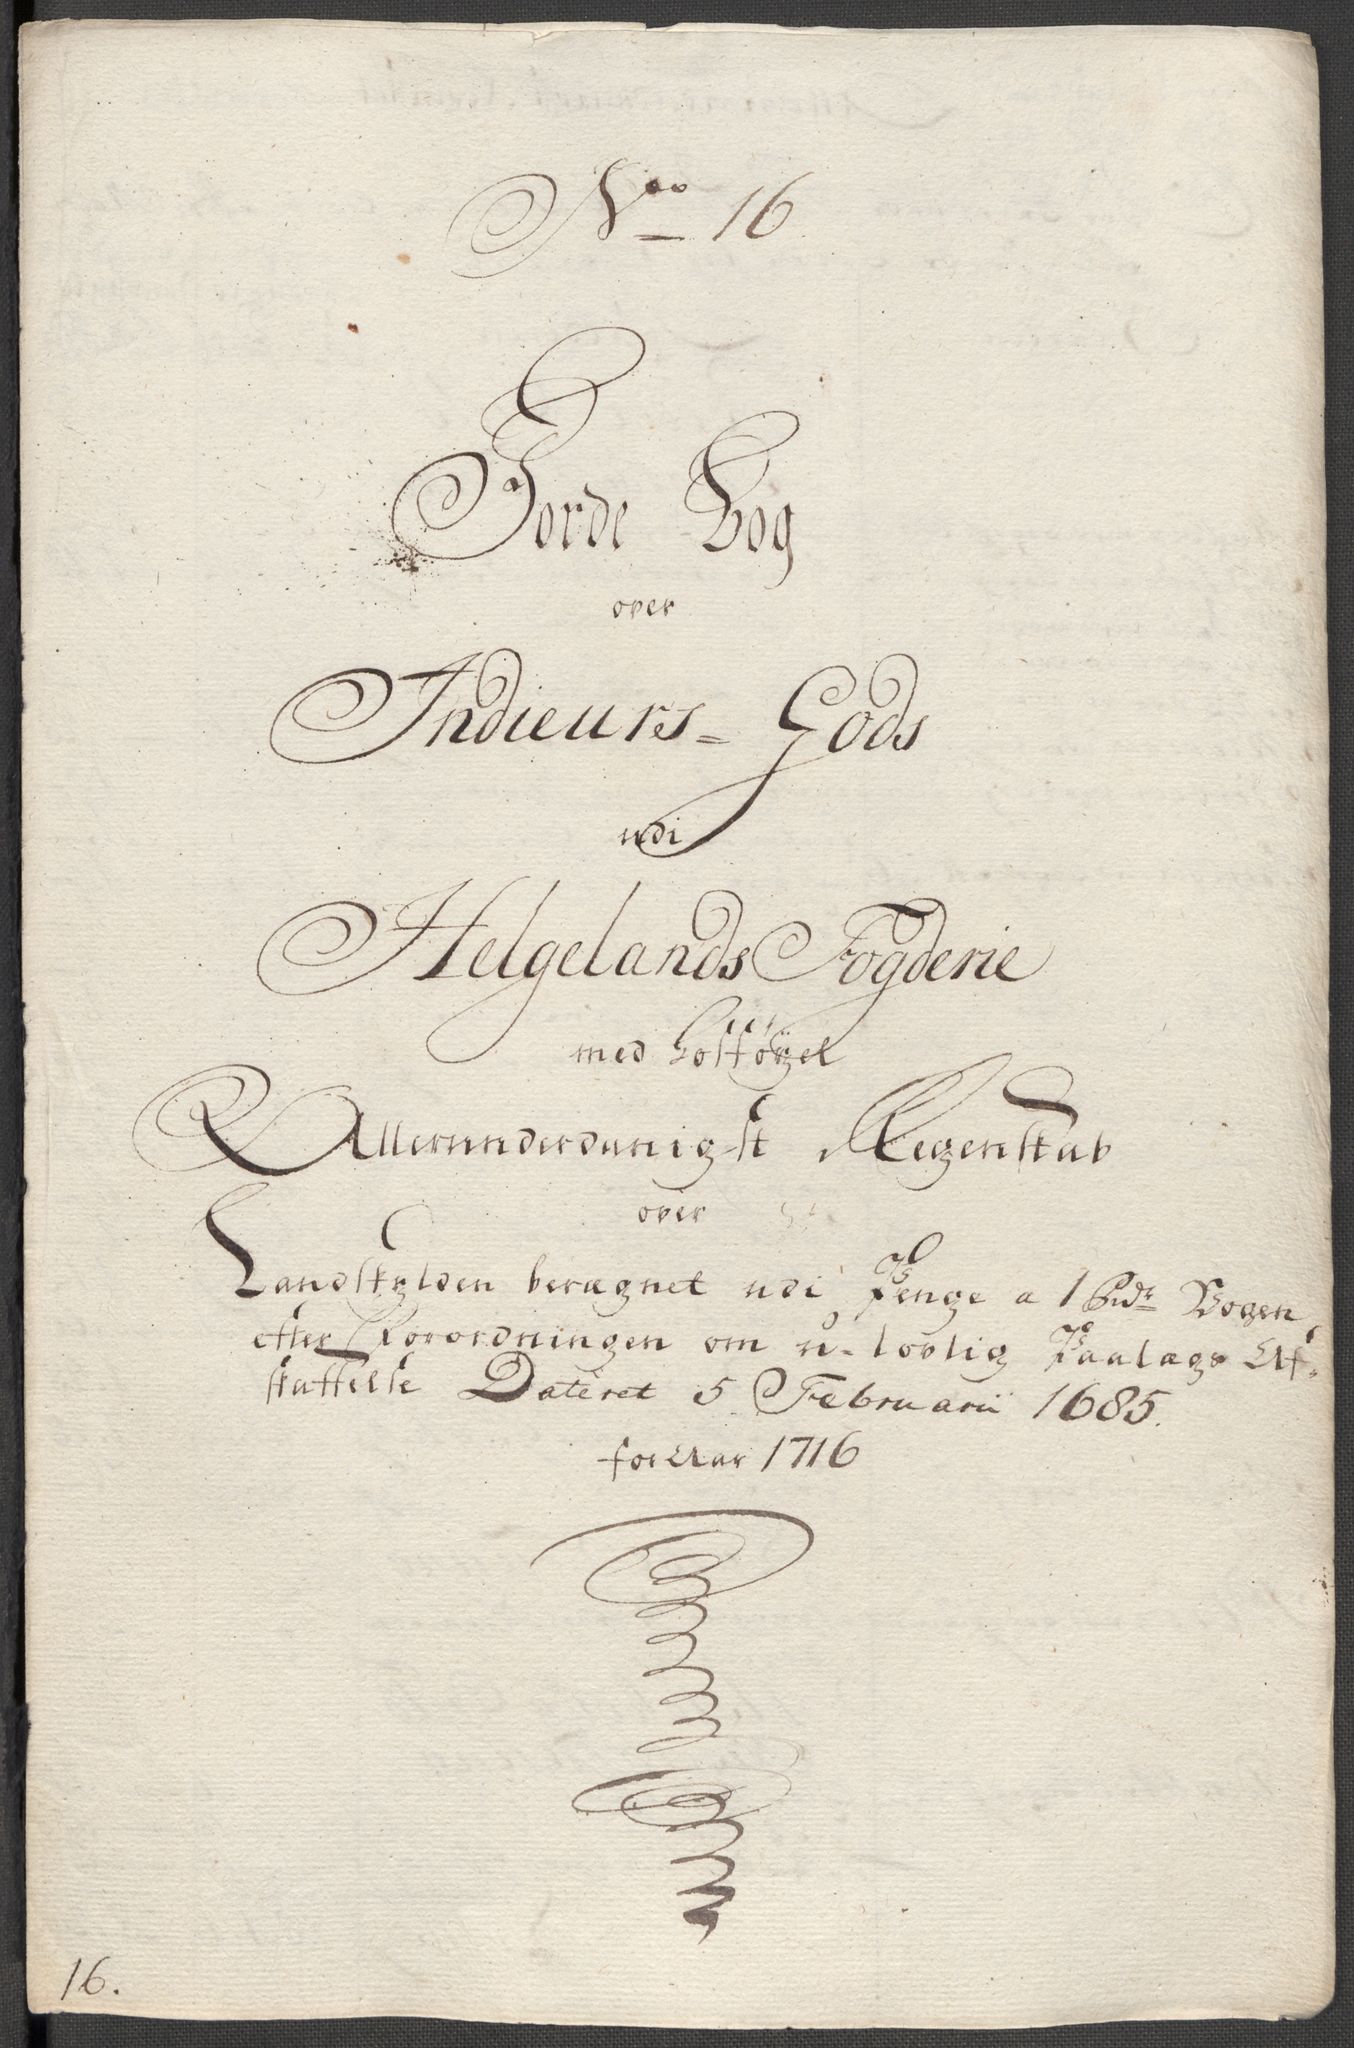 No 16
Jorde Bog
over
Indieurs= Gods
udi
Helgelands Fogderie
med hostøyel
Allerunderdanigst Regenskab
over
Landskylden beregnet udi Penge a 1 Rdr Wogen
efter Forordningen om u-lovlig Paalægs Af-
skaffelse Dateret 5 Februarii 1685.
for Aar 1716
16.